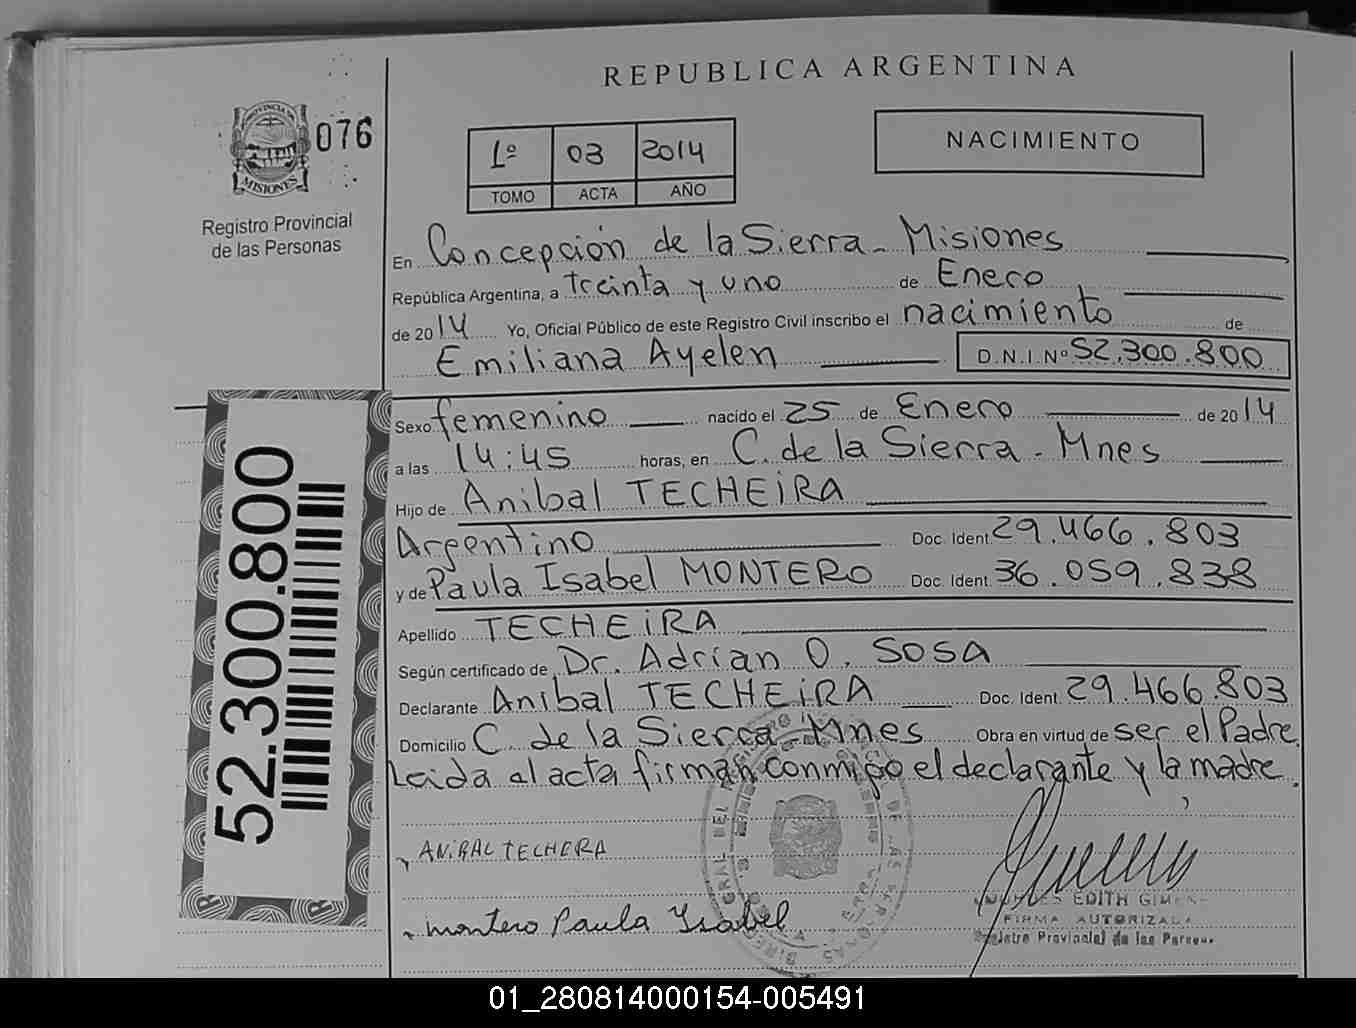 REPUBLICA ARGENTINA
PROVINCIA DE
MISIONES
076
Registro Provincial
de las Personas
1º 03 2014
TOMO ACTA AÑO
NACIMIENTO
En Concepción de la Sierra - Misiones
República Argentina, a Treinta y uno de Enero
de 2014 Yo, Oficial Público de este Registro Civil inscribo el nacimiento de
Emiliana Ayelen D.N.I. Nº 52.300.800
Sexo femenino nacido el 25 de Enero de 2014
a las 14:45 horas, en C. de la Sierra - Mnes
Hijo de Anibal TECHEiRA
Argentino Doc. Ident. 29.466.803
y de Paula Isabel MONTERO Doc. Ident. 36.059.838
Apellido TECHEiRA
Según certificado de Dr. Adrian O. SOSA
Declarante Anibal TECHEiRA Doc. Ident. 29.466.803
Domicilio C. de la Sierra - Mnes Obra en virtud de ser el Padre.
Leida el acta firman conmigo el declarante y la madre.
ANiBAL TECHERA
montero Paula Ysabel
EDITH
FIRMA AUTORIZADA
Registro Provincial de las Personas
52.300.800
01_280814000154-005491